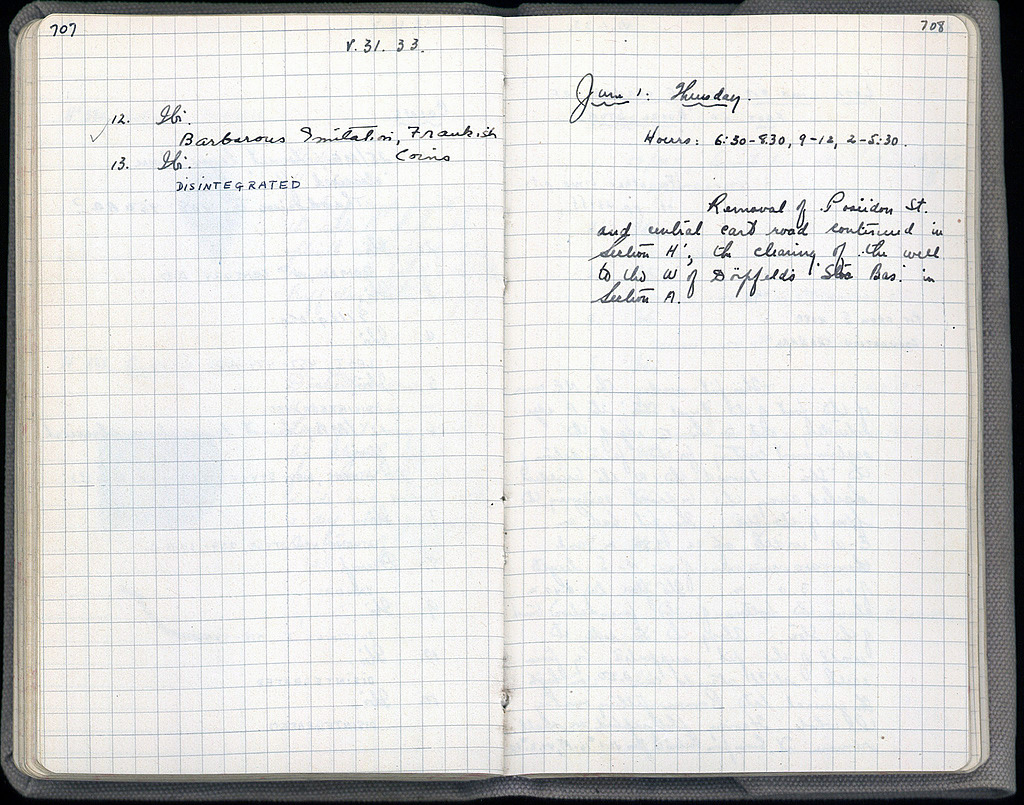 707
V. 31. 33.
12. Ibi.
Barbarous Imitation, Frankish
Coins
13. Ibi.
DISINTEGRATED
708
June 1: Thursday.
Hours: 6:30-8.30, 9-12, 2-5:30.
Removal of Poseidon St.
and central cart road continued in
Section H'; the clearing of the well
to the W of Dörpfeld's 'Stoa Bas.' in
Section A.